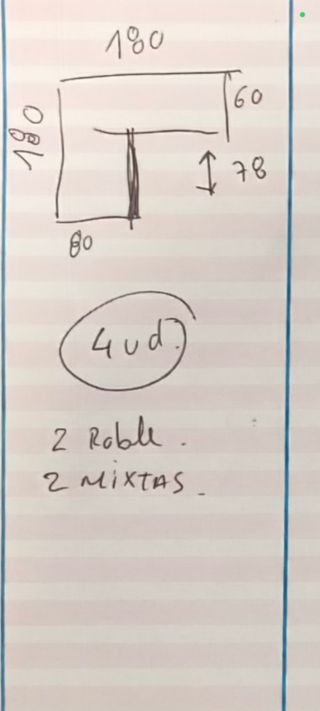 180
180
60
78
80
4 ud.
2 Roble.
2 MiXTAS.